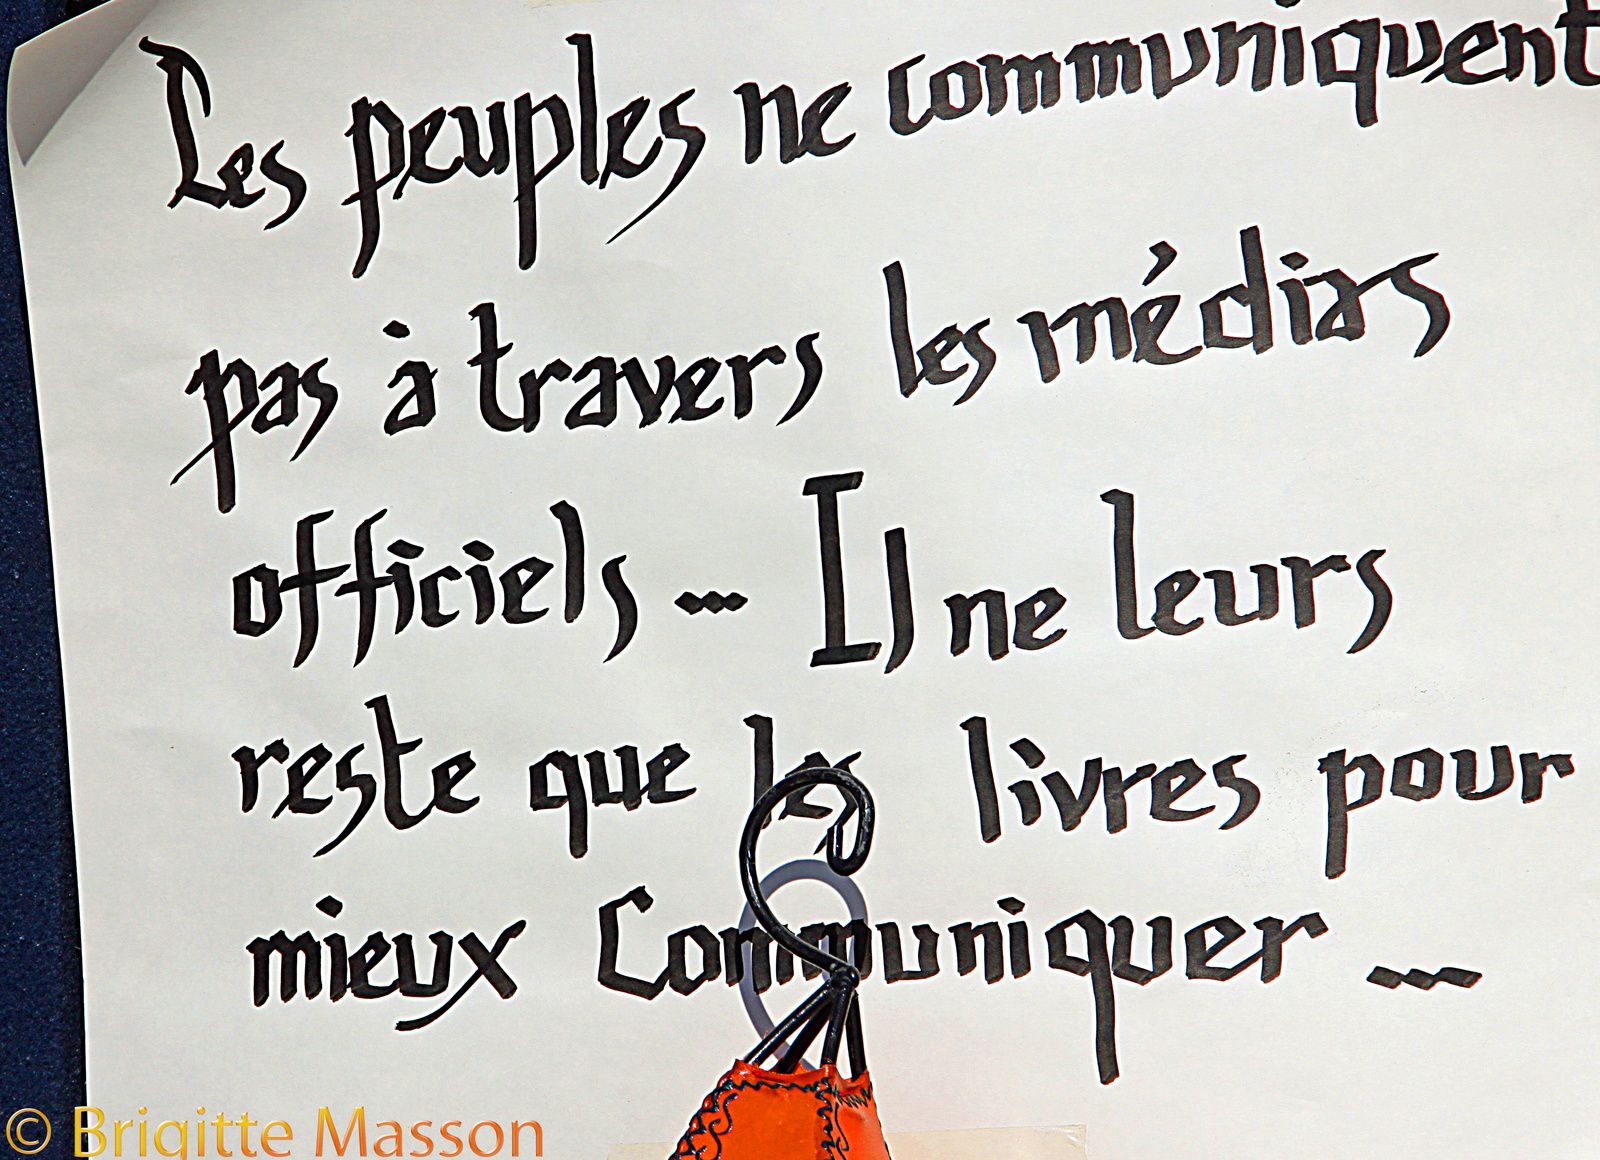 Les peuples ne communiquent
pas à travers les médias
officiels ... Il ne leurs
reste que les livres pour
mieux Communiquer ...
© Brigitte Masson